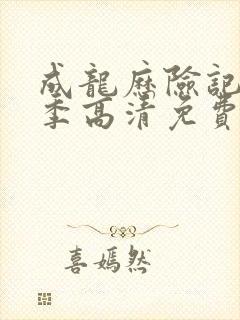 成龍歷險記
季高清免費
喜嫣然